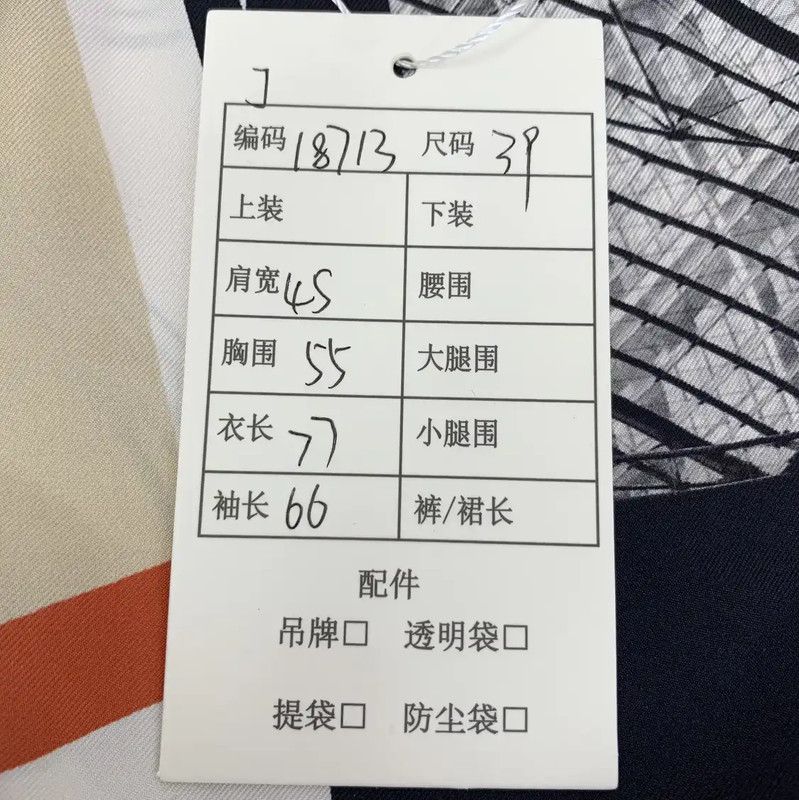 J
编码 18713 尺码 39
上装 下装
肩宽 45 腰围
胸围 55 大腿围
衣长 77 小腿围
袖长 66 裤/裙长
配件
吊牌□ 透明袋□
提袋□ 防尘袋□